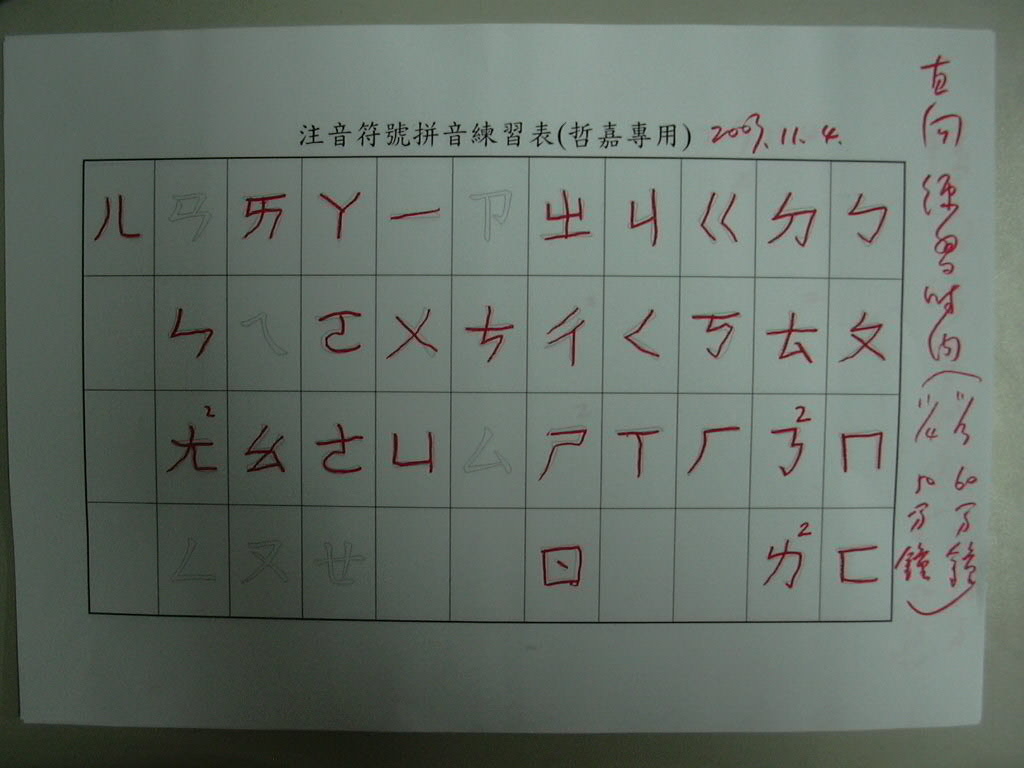 注音符號拼音練習表(哲嘉專用) 2003.11.4.
直向 練習時間
11/5 60分鐘
11/4 50分鐘
ㄅ ㄆ ㄇ ㄈ
ㄉ ㄊ ㄋ2 ㄌ2
ㄍ ㄎ ㄏ
ㄐ ㄑ ㄒ
ㄓ ㄔ ㄕ ㄖ
ㄗ ㄘ ㄙ
ㄧ ㄨ ㄩ
ㄚ ㄛ ㄜ ㄝ
ㄞ ㄟ ㄠ ㄡ
ㄢ ㄣ ㄤ2 ㄥ
ㄦ